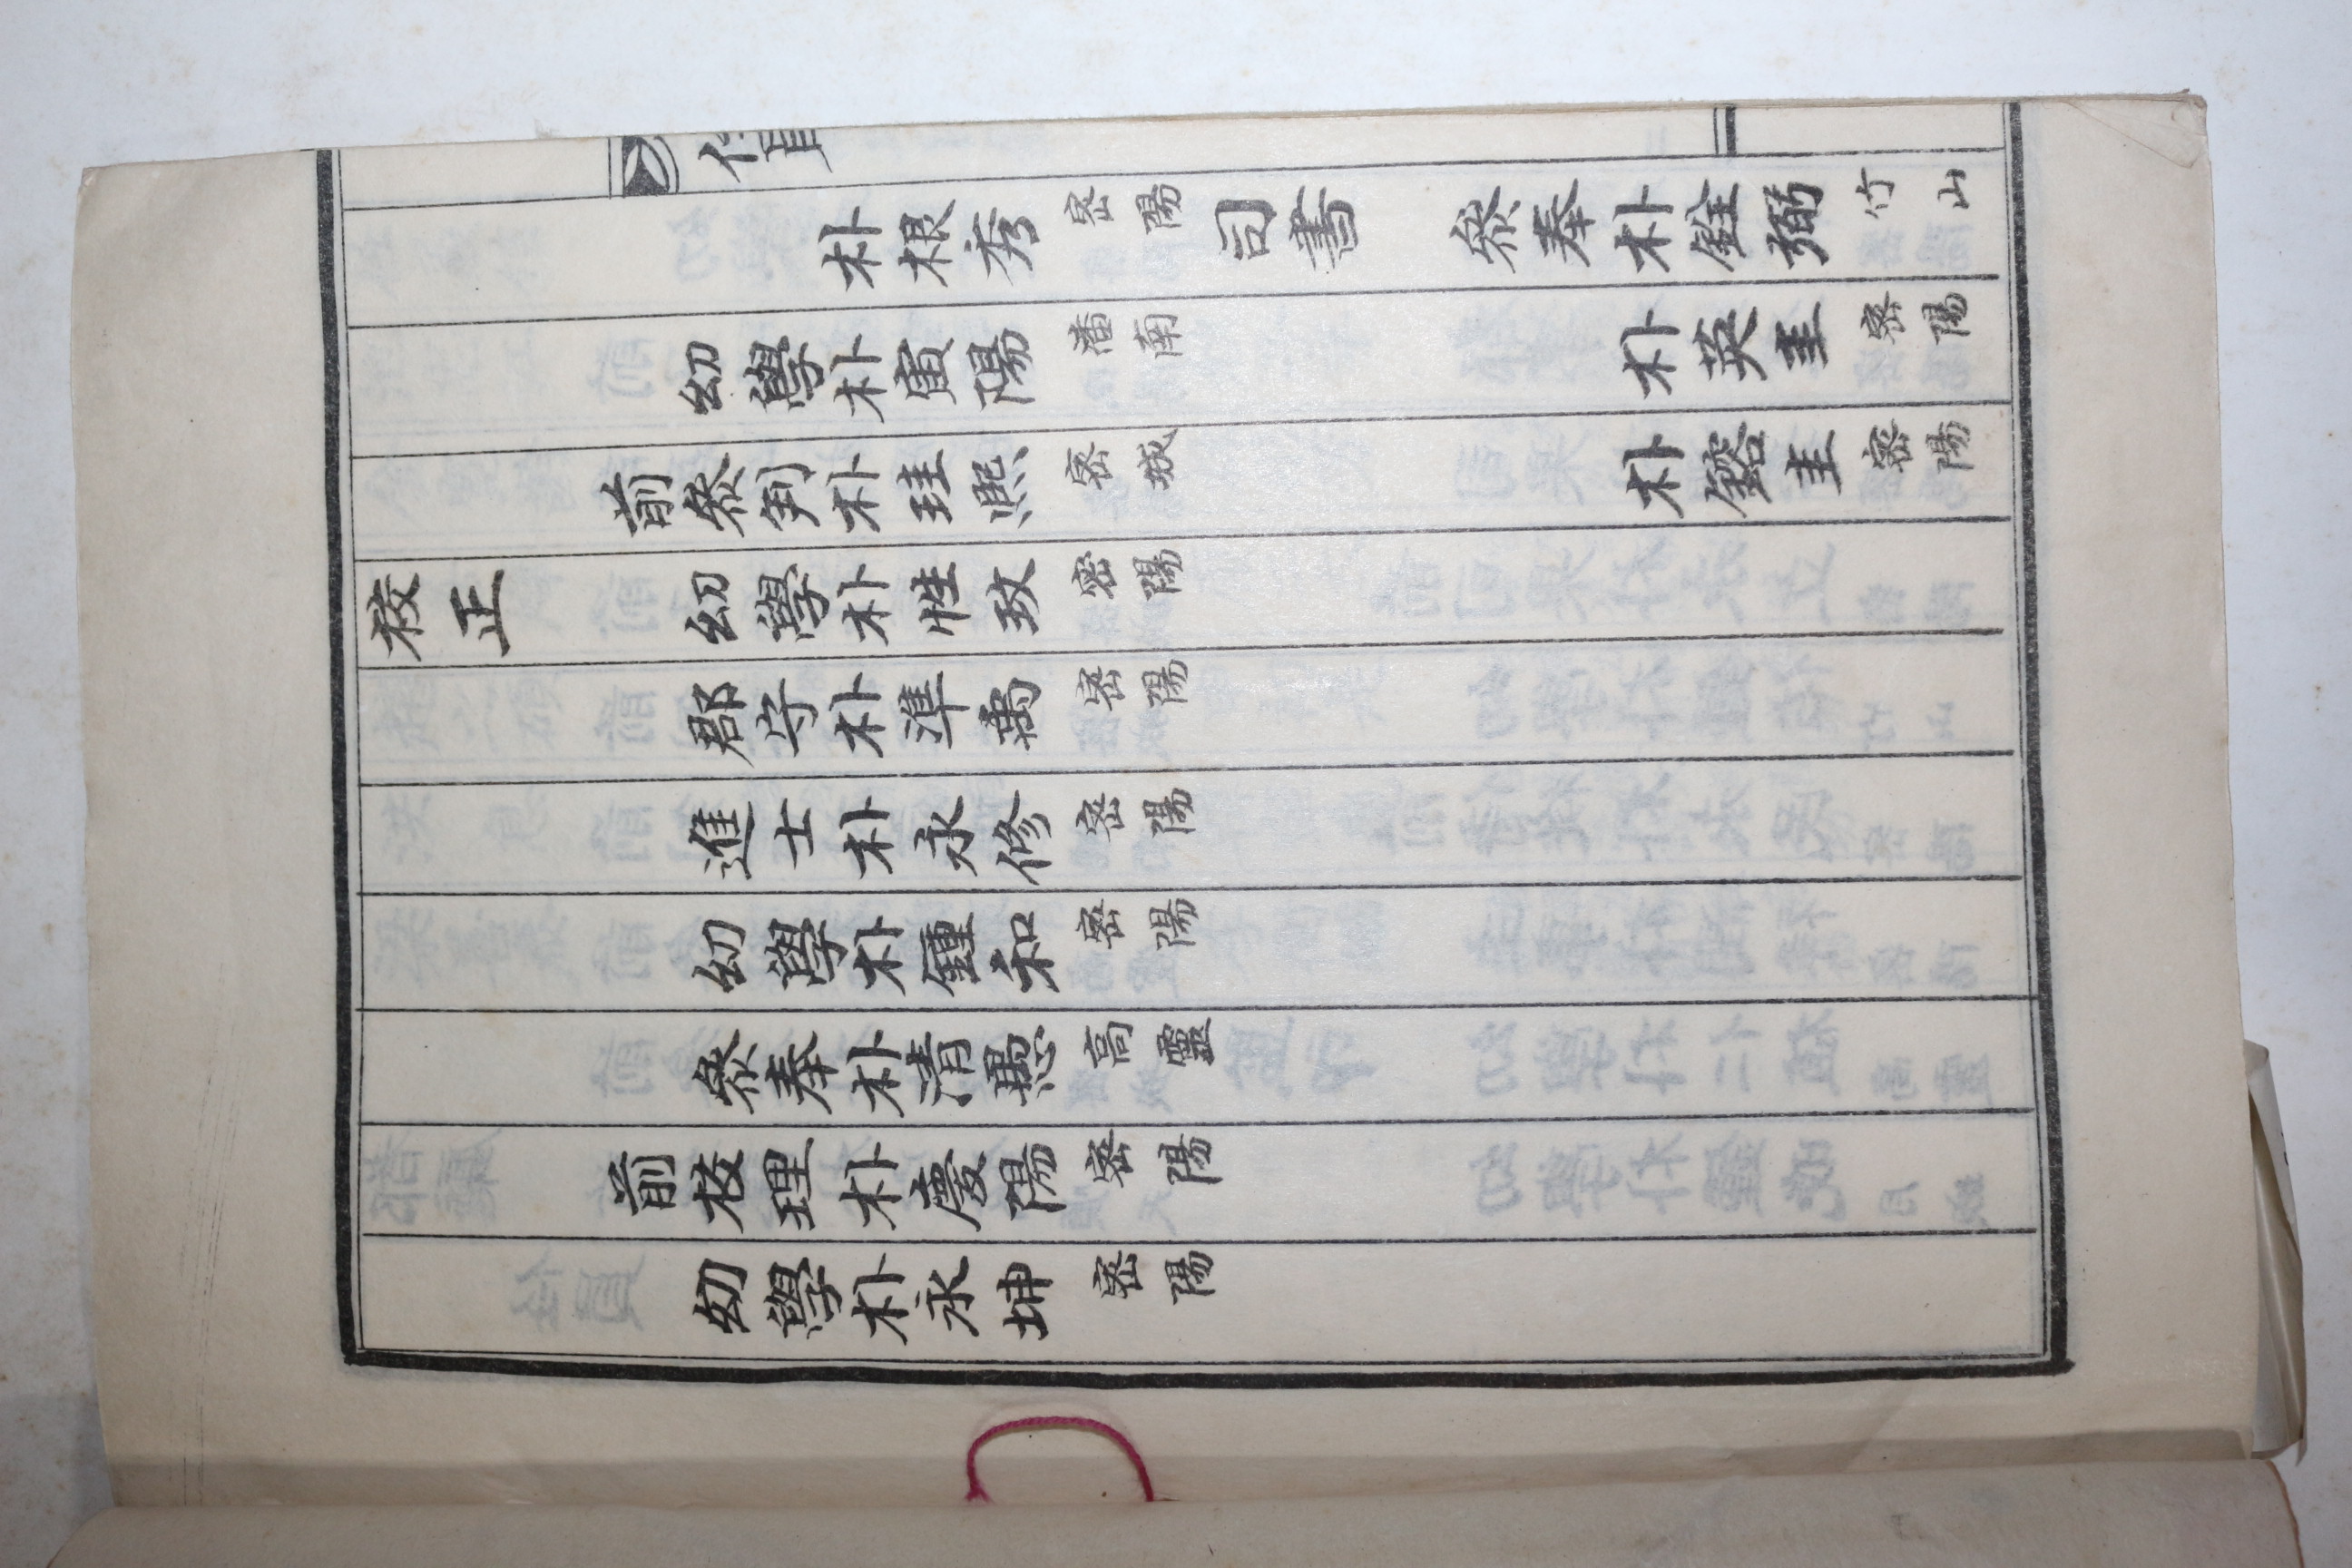 任員
朴根秀 密陽 司書 叅奉朴銓弼 竹山
幼學朴寅陽 潘南 朴英圭 密陽
前叅判朴珪熙 密城 朴鎔圭 密陽
校正 幼學朴性玟 密陽
郡守朴準禹 密陽
進士朴永修 密陽
幼學朴鍾和 密陽
叅奉朴清愚 高靈
前校理朴慶陽 密陽
幼學朴永坤 密陽